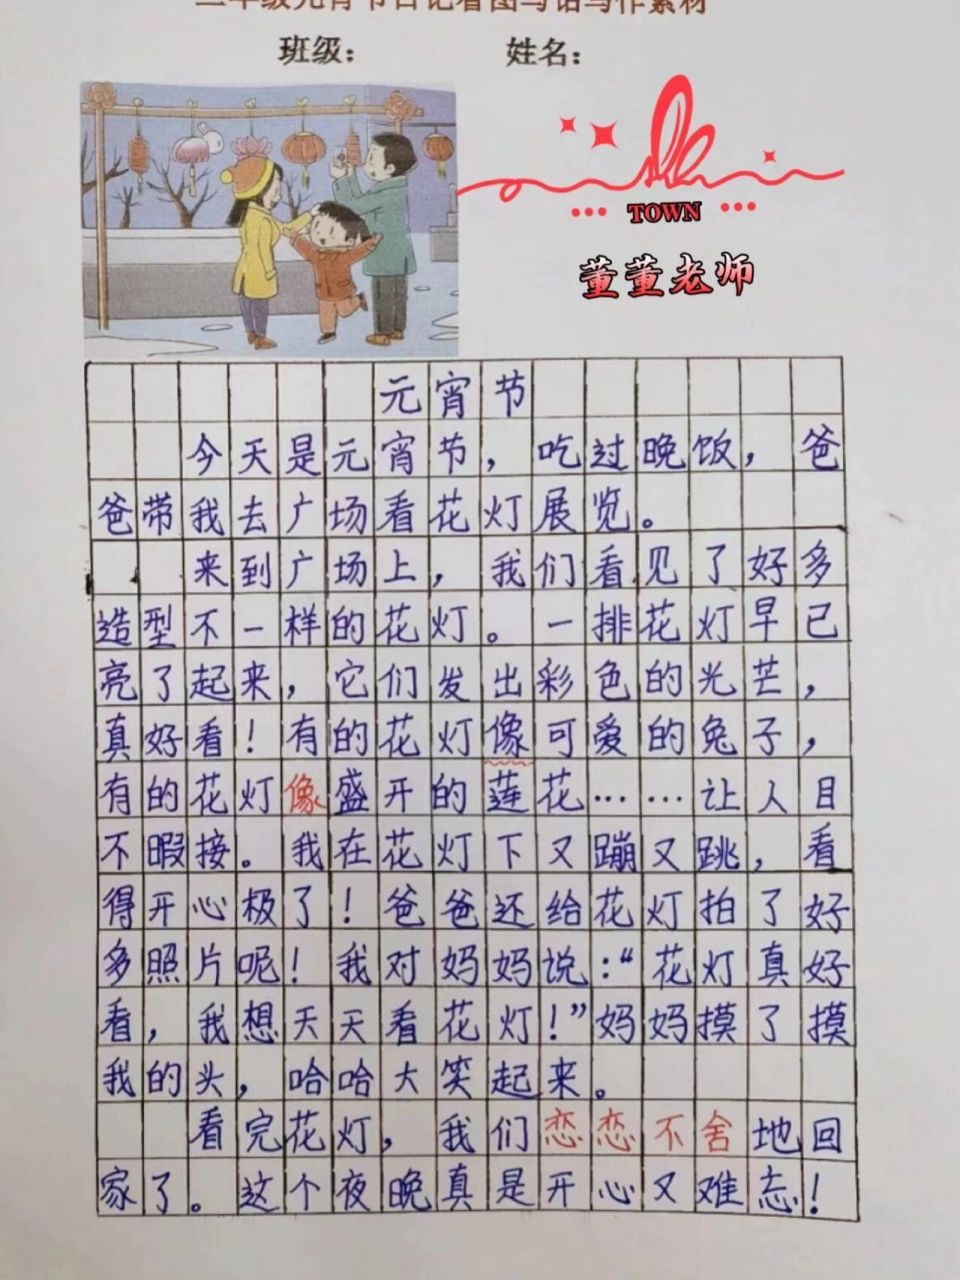 二年级元宵节日记看图写话写作素材
班级： 姓名：
TOWN
董董老师
元宵节
今天是元宵节，吃过晚饭，爸
爸带我去广场看花灯展览。
来到广场上，我们看见了好多
造型不一样的花灯。一排花灯早已
亮了起来，它们发出彩色的光芒，
真好看！有的花灯像可爱的兔子，
有的花灯像盛开的莲花……让人目
不暇接。我在花灯下又蹦又跳，看
得开心极了！爸爸还给花灯拍了好
多照片呢！我对妈妈说：“花灯真好
看，我想天天看花灯！”妈妈摸了摸
我的头，哈哈大笑起来。
看完花灯，我们恋恋不舍地回
家了。这个夜晚真是开心又难忘！